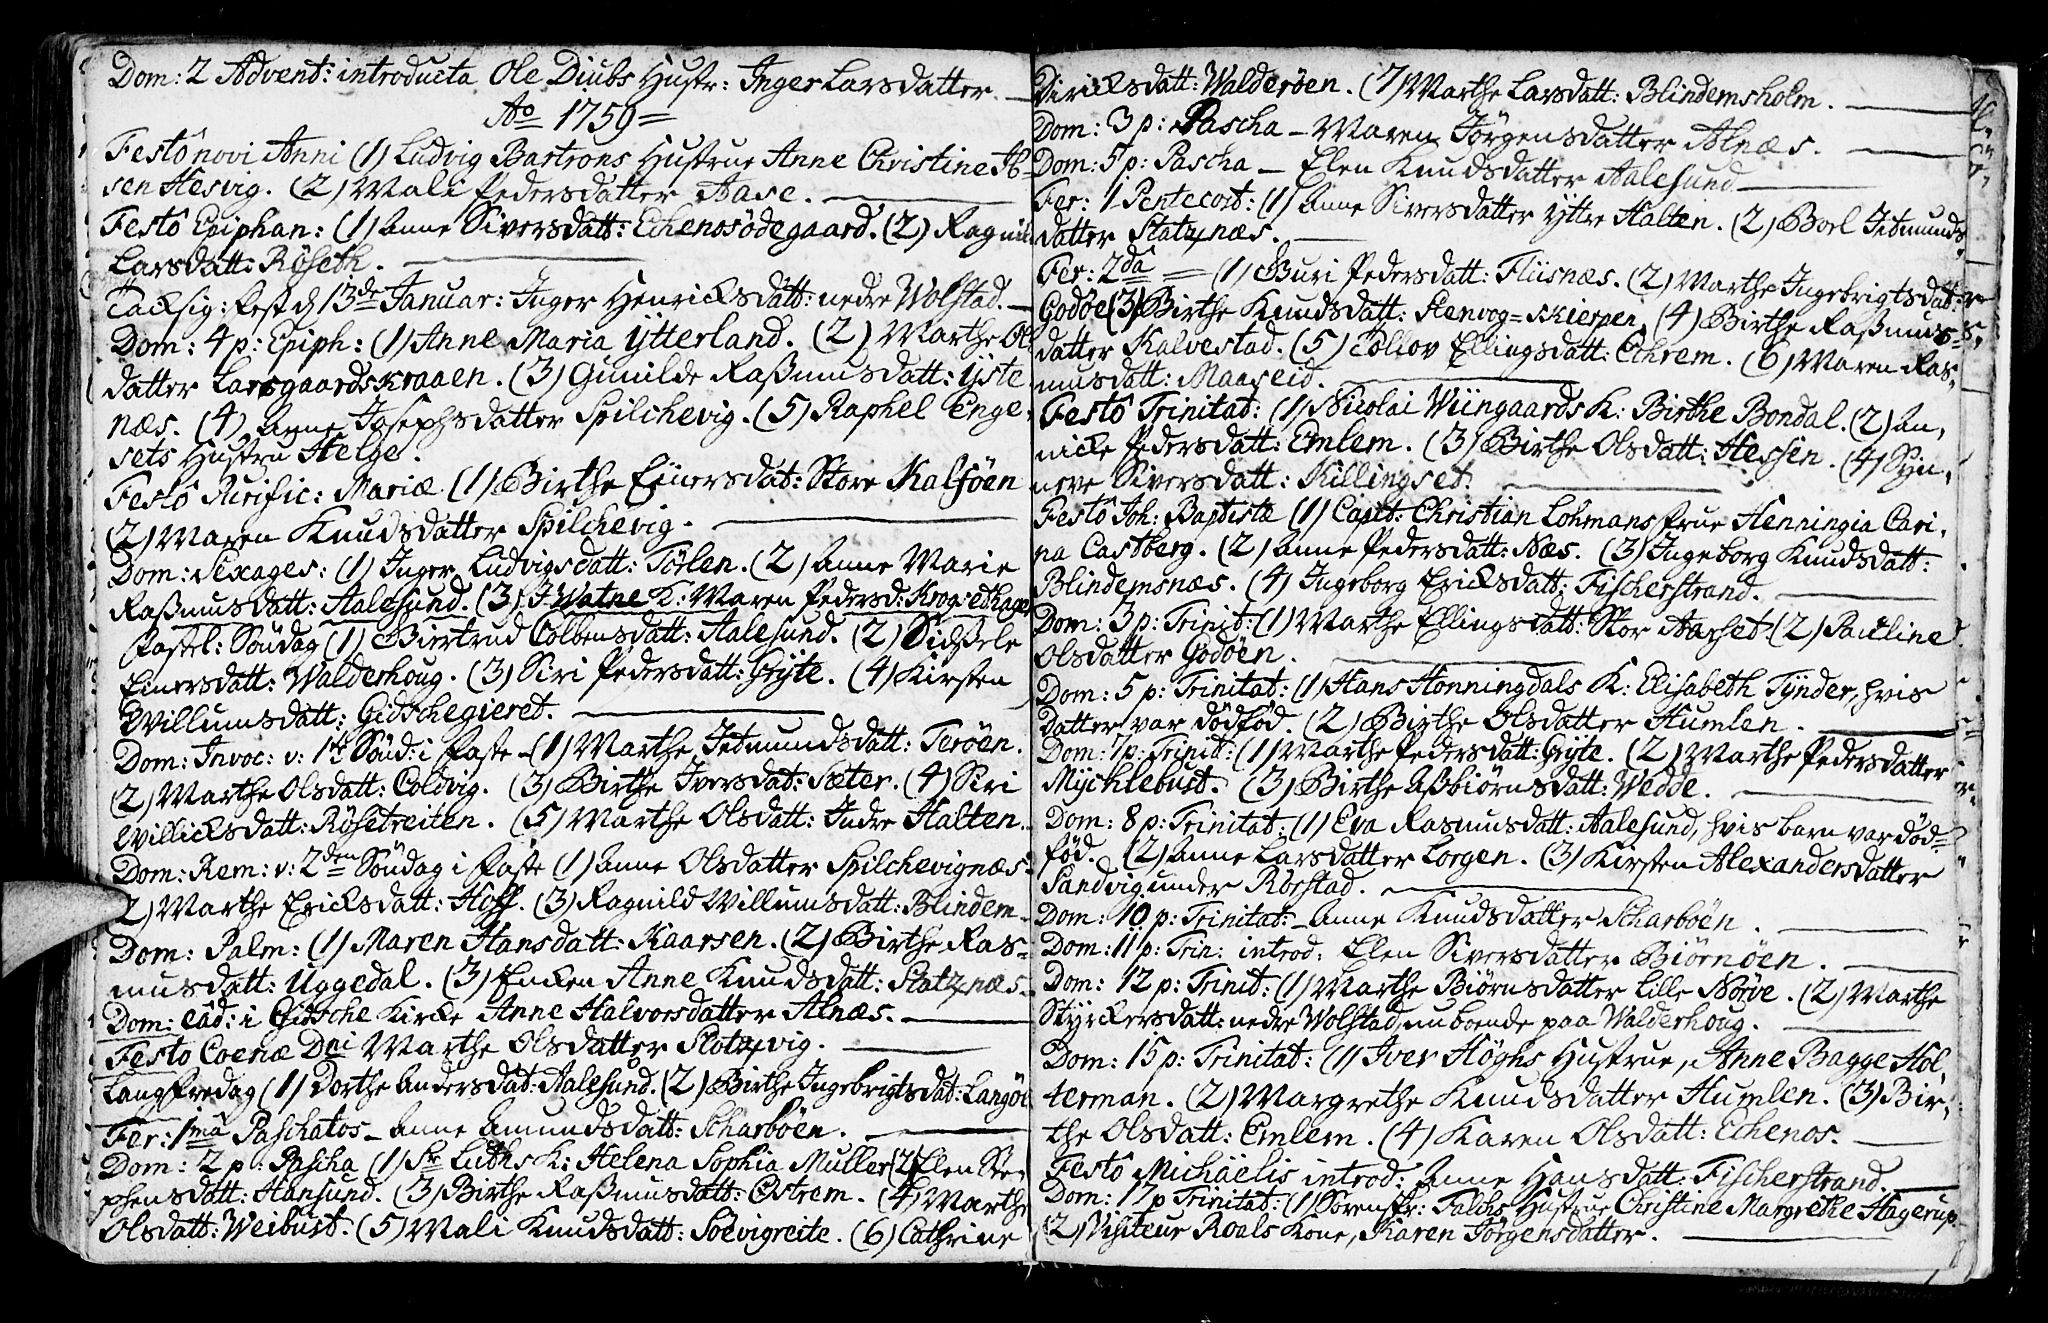 Dom: 2 Advent: introducta Ole Diubs Hustr: Inger Larsdatter
Ao 1759
Festô novi Anni (1) Ludvig Bastrons Hustrue Anne Christine Ab-
sen Hesvig. (2) Mali Pedersdatter Aase.
Festô Epiphan: (1) Anne Siversdatt: Echenosödegaard. (2) Ragni
Larsdatt: Röseth.
Tacksig: fest d 13de Januar: Inger Henricksdatt: nedre Wolstad.
Dom: 4 p: Epiph: (1) Anne Maria Ytterland. (2) Marthe Ol
datter Larsgaardskraaen. (3) Gunilde Raßmusdatt: Yste
næs. (4) Anne Josephsdatter Spilchevig. (5) Raphel Enge
sets Hustru Helge.
Festô Purific: Mariæ (1) Birthe Einersdat: Store Kalföen
(2) Maren Knudsdatter Spilchevig.
Dom: Sexages: (1) Inger Ludvigsdatt: Törlen. (2) Anne Marie
Raßmusdatt: Aalesund. (3) J. Watne K: Maren Pedersd: Krogsethage
Fastel: Söndag (1) Biertrud Colbensdatt: Aalesund. (2) Sidßele
Einersdatt: Walderhoug. (3) Siri Pedersdatt: Gryte. (4) Kirsten
Willumsdatt: Gidschegieret.
Dom: Invoc: v: 1te Sönd: i Faste (1) Marthe Jetmundsdatt: Teröen.
(2) Marthe Olsdatt: Coldvig. (3) Birthe Iversdat: Sæter. (4) Siri
Willicksdatt: Rösetreiten. (5) Marthe Olsdatt: Indre Halten.
Dom: Rem: v: 2den Söndag i Faste (1) Anne Olsdatter Spilchevignæs
2) Marthe Ericksdatt: Hoff. (3) Ragnild Willumsdatt: Blindem
Dom: Palm: (1) Maren Hansdatt: Kaarsen. (2) Birthe Ras-
musdatt: Uggedal. (3) Encken Anne Knudsdatt: Slatznæs
Dom: eâd: i Gidsche Kirke Anne Halvorsdatter Alnæs.
Festo Coenæ Dni Marthe Olsdatter Slotzvig.
Langfredag (1) Dorthe Andersdat: Aalesund. (2) Birthe Ingebrigtsdat: Langöe
Fer: 1mâ Paschatos – Anne Amundsdatt: Scharböen.
Dom: 2 p: Pascha (1) Sr Luths K: Helena Sophia Muller (2) Elen Ste-
phensdatt: Hansund. (3) Birthe Raßmusdatt: Ostrem. (4) Marthe
Olsdatt: Weibust. (5) Mali Knudsdatt: Söevigreite. (6) Cathrine
Diricksdatt: Walderöen. (7) Marthe Larsdatt: Blindemsholm.
Dom: 3 p: Pascha – Maren Jörgensdatter Alnæs.
Dom: 5 p: Pascha – Elen Knudsdatter Aalesund
Fer: 1 Pentecost: (1) Anne Siversdatter Yttre Halten. (2) Boel Jetmunds
datter Slatznæs.
Fer: 2dâ – (1) Guri Pedersdatt: Fliisnæs. (2) Marthe Ingebrigtsdat:
Godöe (3) Birthe Knudsdatt: Stenvog=Skierpen. (4) Birthe Raßmus
datter Kalvestad. (5) Tollov Ellingsdatt: Echrem. (6) Maren Ras-
musdatt: Maaseid.
Festô Trinitat: (1) Nicolai Wiingaards K: Birthe Bondal. (2) An,
nicke Pedersdatt: Emlem. (3) Birthe Olsdatt: Hessen. (4) Syn-
neve Siversdatt: Killingset.
Festô Joh: Baptistæ (1) Capit: Christian Lohmans frue Henningia Cari-
na Castberg. (2) Anne Pedersdatt: Næs. (3) Ingeborg Knudsdatt:
Blindemsnæs. (4) Ingeborg Ericksdatt: Fischerstrand.
Dom: 3 p: Trinit: (1) Marthe Ellingsdatt: Stor Aarset. (2) Pauline
Olsdatter Godöen.
Dom: 5 p: Trinitat: (1) Hans Honningdals K: Elisabeth Tynder, hvis
datter var dödföd. (2) Birthe Olsdatter Humlen.
Dom: 7 p: Trinit: (1) Marthe Pedersdatt: Gryte. (2) Marthe Pedersdatter
Mychlebust. (3) Birthe Aßbiörnsdatt: Wedde.
Dom: 8 p: Trinitat: (1) Eva Rasmusdatt: Aalesund, hvis barn var död-
föd. (2) Anne Larsdatter Lorgen. (3) Kirsten Alexandersdatter
Sandvig under Rörstad.
Dom: 10 p: Trinitat: – Anne Knudsdatter Scharböen.
Dom: 11 p: Trin: introd: Elen Siversdatter Biörnöen.
Dom: 12 p: Trinit: (1) Marthe Biörnsdatter Lille Nörve. (2) Marthe
Styrckersdatt: nedre Wolstad, nu boende paa Walderhoug.
Dom: 15 p: Trinitat: (1) Iver Höghs Hustrue, Anne Bagge Hol-
terman. (2) Margrethe Knudsdatter Humlen. (3) Bir-
the Olsdatt: Emlem. (4) Karen Olsdatt: Echenos.
Festô Michäelis introd: Anne Hansdatt: Fischerstrand.
Dom: 17 p Trinitat: (1) Sorenskr: Falchs Hustrue Christine Margrethe Hagerup
(2) Visiteur Roals Kone, Karen Jörgensdatter.